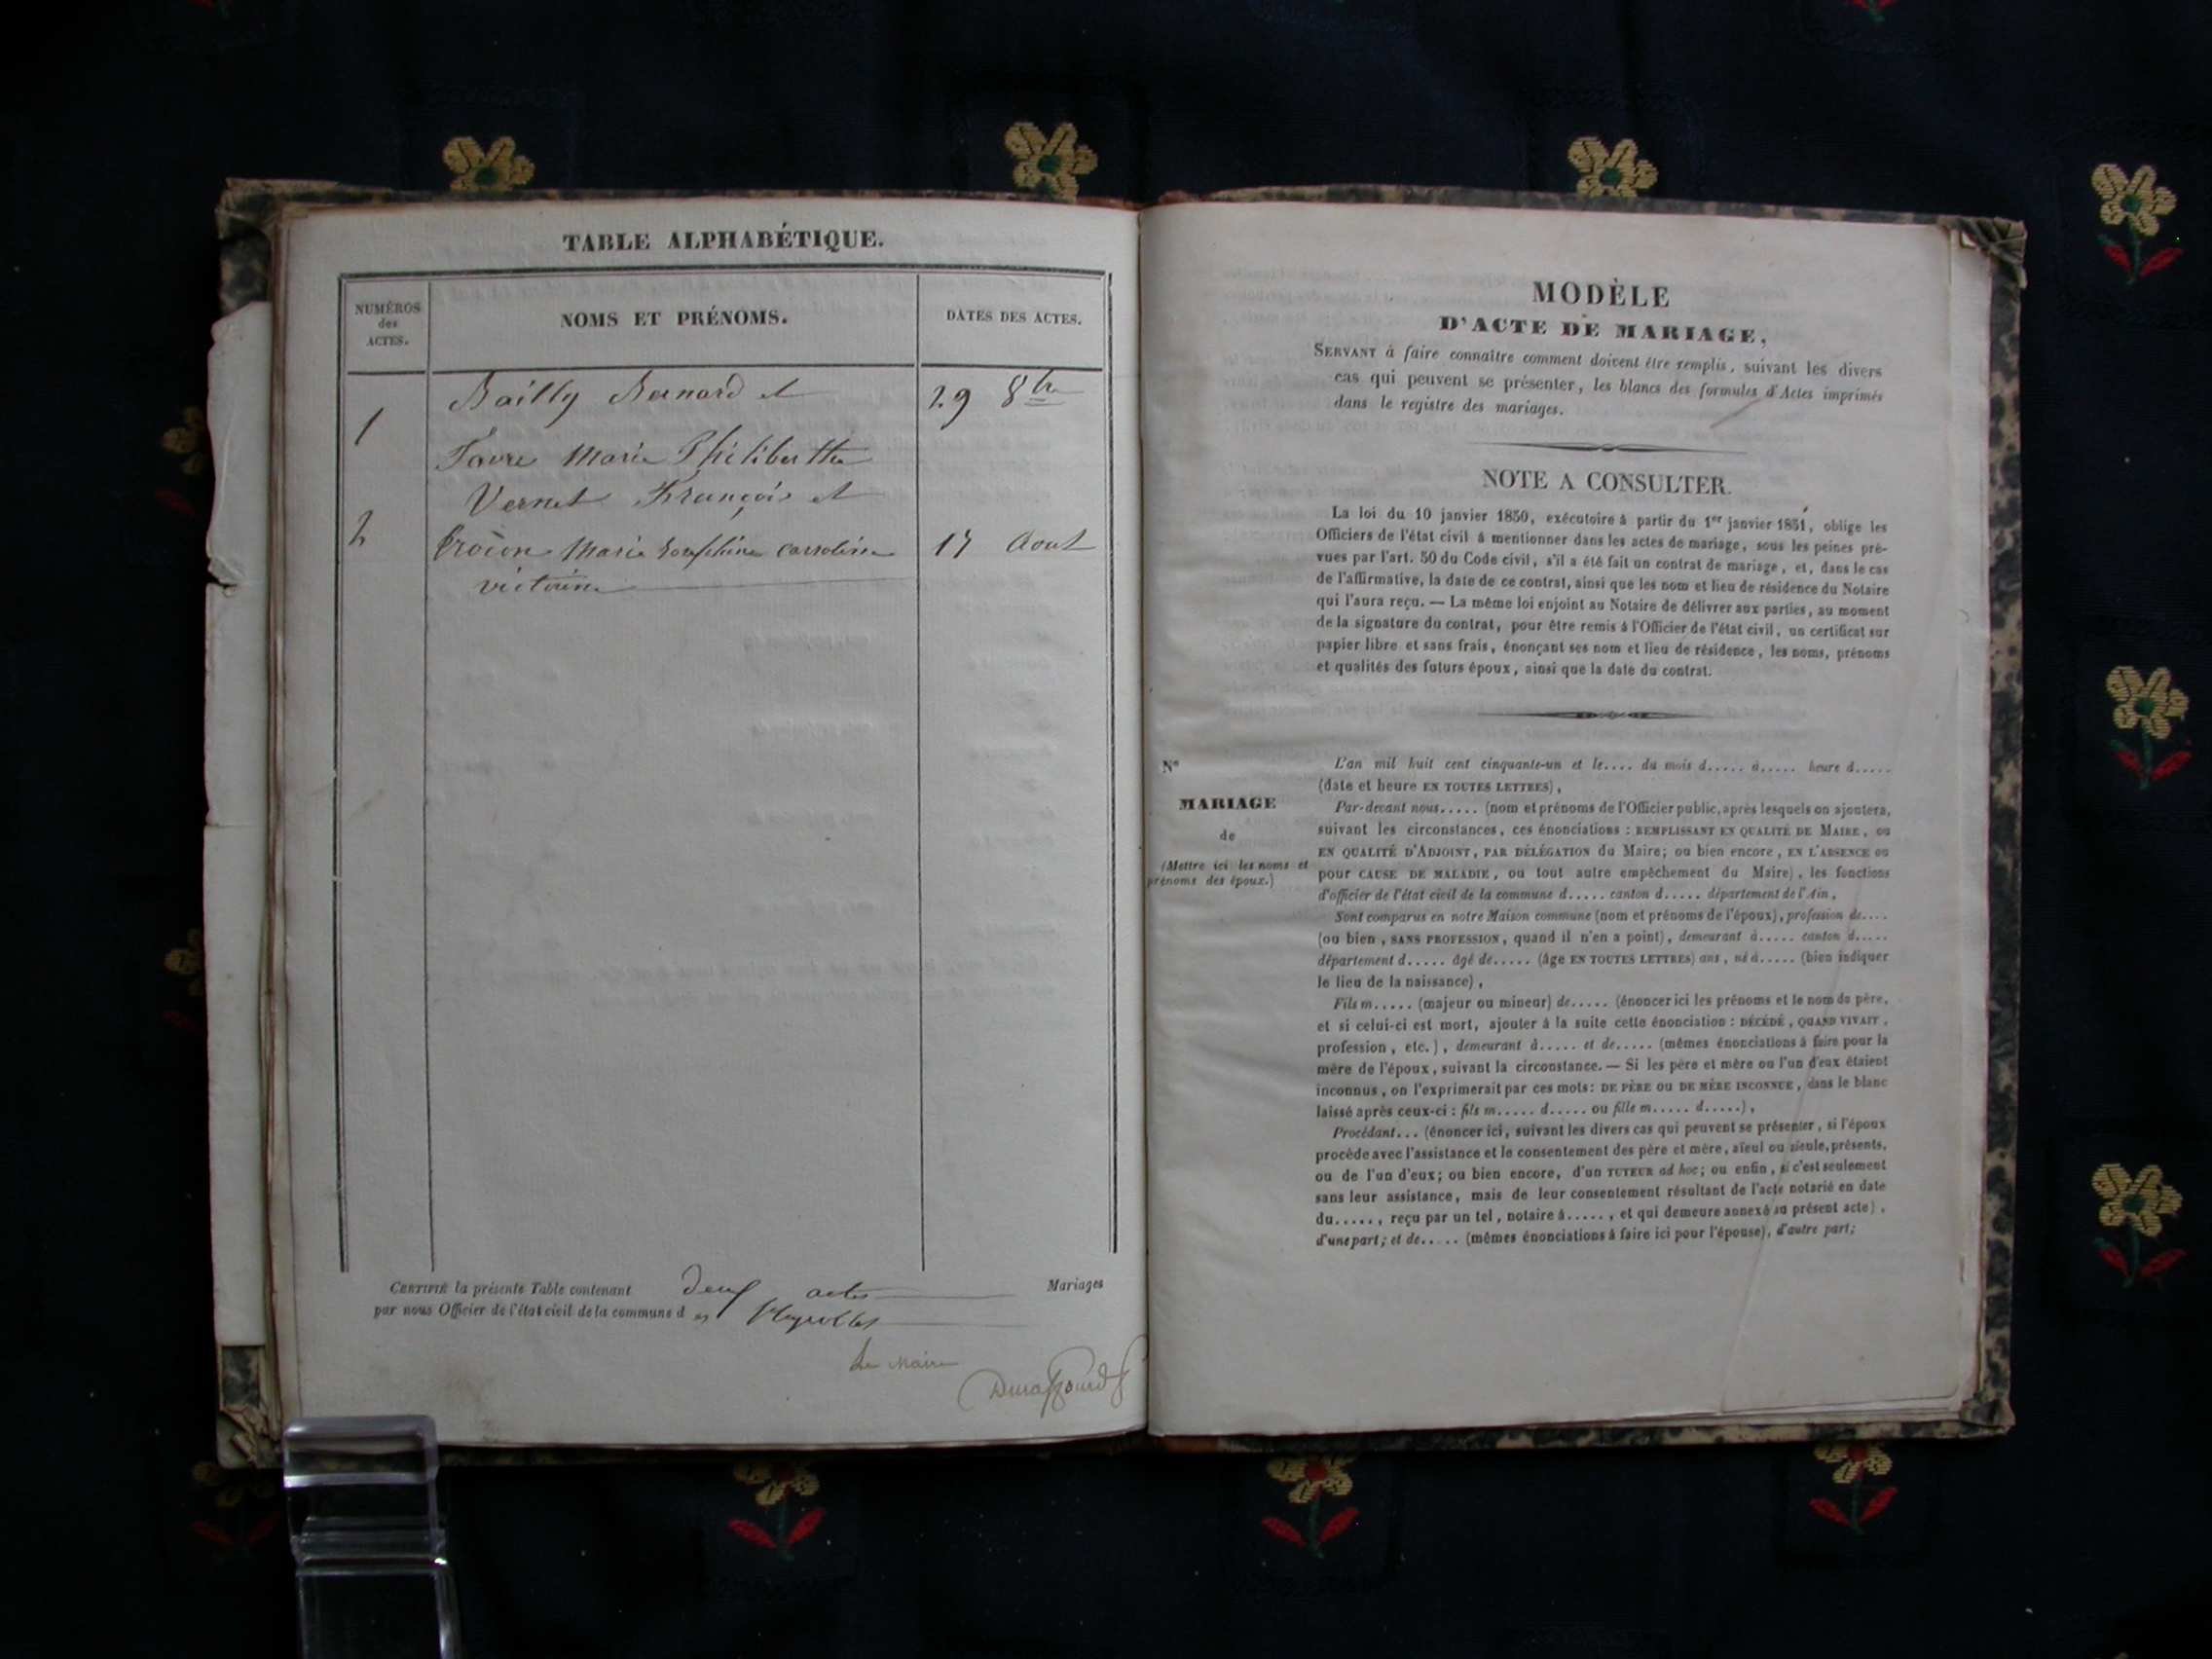 TABLE ALPHABÉTIQUE.
NUMÉROS
des
ACTES.
NOMS ET PRÉNOMS.
DATES DES ACTES.
1
Bailly Bernard et
29 8bre
Favre Marie Philiberthe
Vernet François et
2
Marie Josephine Carroline
17 Aout
victoire
CERTIFIÉ la présente Table contenant deux actes Mariages
par nous Officier de l'état civil de la commune d es
Le Maire
MODÈLE
D'ACTE DE MARIAGE,
SERVANT à faire connaître comment doivent être remplis, suivant les divers
cas qui peuvent se présenter, les blancs des formules d'Actes imprimés
dans le registre des mariages.
NOTE A CONSULTER.
La loi du 10 janvier 1850, exécutoire à partir du 1er janvier 1851, oblige les
Officiers de l'état civil à mentionner dans les actes de mariage, sous les peines pré-
vues par l'art. 50 du Code civil, s'il a été fait un contrat de mariage, et, dans le cas
de l'affirmative, la date de ce contrat, ainsi que les nom et lieu de résidence du Notaire
qui l'aura reçu. — La même loi enjoint au Notaire de délivrer aux parties, au moment
de la signature du contrat, pour être remis à l'Officier de l'état civil, un certificat sur
papier libre et sans frais, énonçant ses nom et lieu de résidence, les noms, prénoms
et qualités des futurs époux, ainsi que la date du contrat.
N°
MARIAGE
de
(Mettre ici les noms et
prénoms des époux.)
L'an mil huit cent cinquante-un et le.... du mois d..... à..... heure d.....
(date et heure EN TOUTES LETTRES),
Par-devant nous..... (nom et prénoms de l'Officier public, après lesquels on ajoutera,
suivant les circonstances, ces énonciations : REMPLISSANT EN QUALITÉ DE MAIRE, ou
EN QUALITÉ D'ADJOINT, PAR DÉLÉGATION du Maire; ou bien encore, EN L'ABSENCE ou
pour CAUSE DE MALADIE, ou tout autre empêchement du Maire), les fonctions
d'officier de l'état civil de la commune d..... canton d..... département de l'Ain,
Sont comparus en notre Maison commune (nom et prénoms de l'époux), profession de....
(ou bien, SANS PROFESSION, quand il n'en a point), demeurant à..... canton d.....
département d..... âgé de..... (âge EN TOUTES LETTRES) ans, né à..... (bien indiquer
le lieu de la naissance),
Fils m..... (majeur ou mineur) de..... (énoncer ici les prénoms et le nom du père,
et si celui-ci est mort, ajouter à la suite cette énonciation : DÉCÉDÉ, QUAND VIVAIT,
profession, etc.), demeurant à..... et de..... (mêmes énonciations à faire pour la
mère de l'époux, suivant la circonstance. — Si les père et mère ou l'un d'eux étaient
inconnus, on l'exprimerait par ces mots: DE PÈRE OU DE MÈRE INCONNUE, dans le blanc
laissé après ceux-ci : fils m..... d..... ou fille m..... d.....),
Procédant... (énoncer ici, suivant les divers cas qui peuvent se présenter, si l'époux
procède avec l'assistance et le consentement des père et mère, aïeul ou aïeule, présents,
ou de l'un d'eux; ou bien encore, d'un TUTEUR ad hoc; ou enfin, si c'est seulement
sans leur assistance, mais de leur consentement résultant de l'acte notarié en date
du....., reçu par un tel, notaire à....., et qui demeure annexé au présent acte),
d'une part; et de..... (mêmes énonciations à faire ici pour l'épouse), d'autre part;